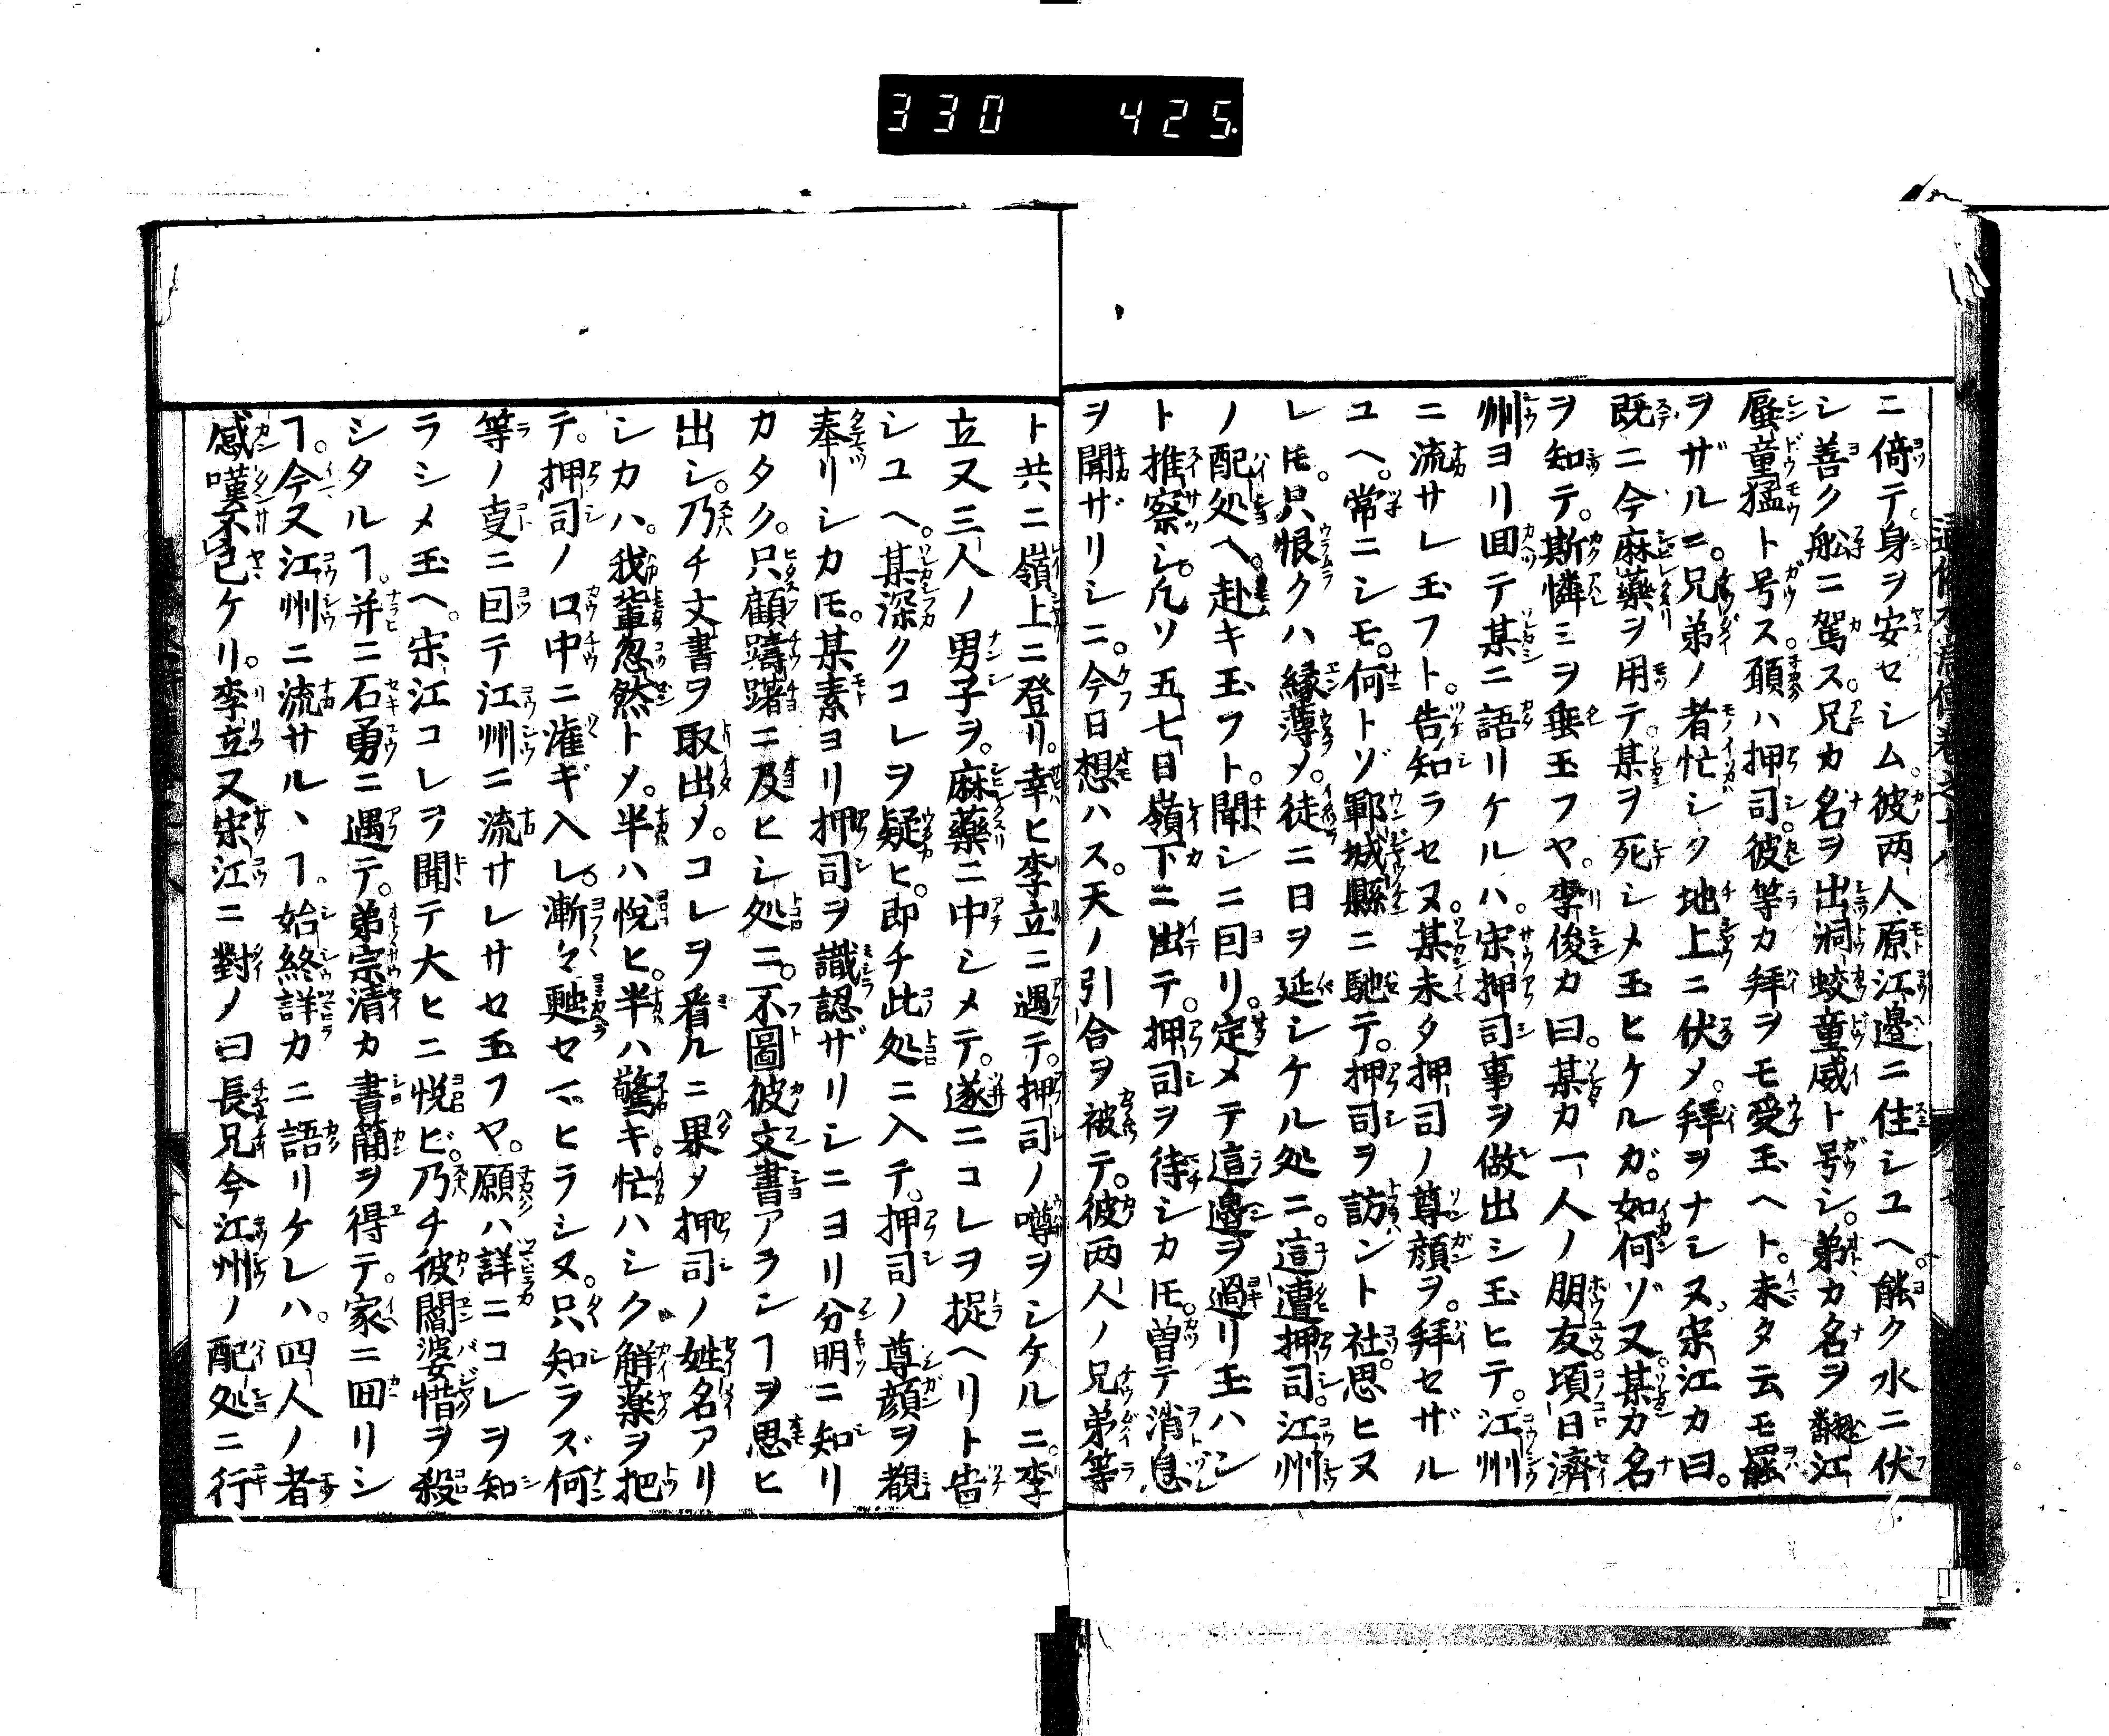 330 425
ニ倚テ。身ヲ安セシム。彼両人原江邊ニ住シユヘ。能ク水ニ伏
シ善ク舩ニ駕ス。兄カ名ヲ出洞蛟童威ト号シ。弟カ名ヲ翻江
蜃童猛ト号ス。願ハ押司彼等カ拜ヲモ受玉ヘト。未タ云モ罷
ヲザルニ。兄弟ノ者忙シク地上ニ伏メ。拜ヲナシヌ。宋江カ曰。
既ニ今麻藥ヲ用テ。某ヲ死シメ玉ヒケルガ。如何ゾ又某カ名
ヲ知テ。斯憐ミヲ垂玉フヤ。李俊カ曰。某カ一人ノ朋友頃日濟
州ヨリ回テ某ニ語リケルハ。宋押司事ヲ做出シ玉ヒテ。江州
ニ流サレ玉フト。告知ラセヌ。某未タ押司ノ尊顔ヲ。拜セザル
ユヘ。常ニシモ。何トゾ鄆城縣ニ馳テ。押司ヲ訪ント社思ヒヌ
レ𪜈。只恨クハ縁薄メ。徒ニ日ヲ延シケル処ニ。這遭押司。江州
ノ配処ヘ。赴キ玉フト。聞シニ囙リ。定メテ這邊ヲ過リ玉ハン
ト推察シ。凡ソ五七日嶺下ニ出テ。押司ヲ待シカ𪜈。曽テ消息
ヲ聞ザリシニ。今日想ハス。天ノ引合ヲ被テ。彼両人ノ兄弟等
ト共ニ嶺上ニ登リ。幸ヒ李立ニ遇テ。押司ノ噂ヲシケルニ。李
立又三人ノ男子ヲ。麻藥ニ中シメテ。遂ニコレヲ捉ヘリト告
シユヘ。某深クコレヲ疑ヒ。即チ此処ニ入テ。押司ノ尊顔ヲ覩
奉リシカ𪜈。某素ヨリ押司ヲ識認ザリシニヨリ分明ニ知リ
カタク。只顧躊躇ニ及ヒシ処ニ。不圖彼文書アランヿヲ思ヒ
出シ。乃チ文書ヲ取出メ。コレヲ看ルニ果タ押司ノ姓名アリ
シカハ。我輩忽然トメ。半ハ悅ヒ。半ハ驚キ。忙ハシク解薬ヲ把
テ。押司ノ口中ニ潅ギ入レ。漸々甦セマヒラシヌ。只知ラズ何
等ノ㕝ニ囙テ江州ニ流サレサセ玉フヤ。願ハ詳ニコレヲ知
ラシメ玉ヘ。宋江コレヲ聞テ大ヒニ悅ビ。乃チ彼閻婆惜ヲ殺
シタルヿ。并ニ石勇ニ遇テ。弟宗清カ書簡ヲ得テ。家ニ回リシ
ヿ。今又江州ニ流サルヽヿ。始終詳カニ語リケレハ。四人ノ者
感嘆不已ケリ。李立又宋江ニ對ノ曰長兄今江州ノ配処ニ行